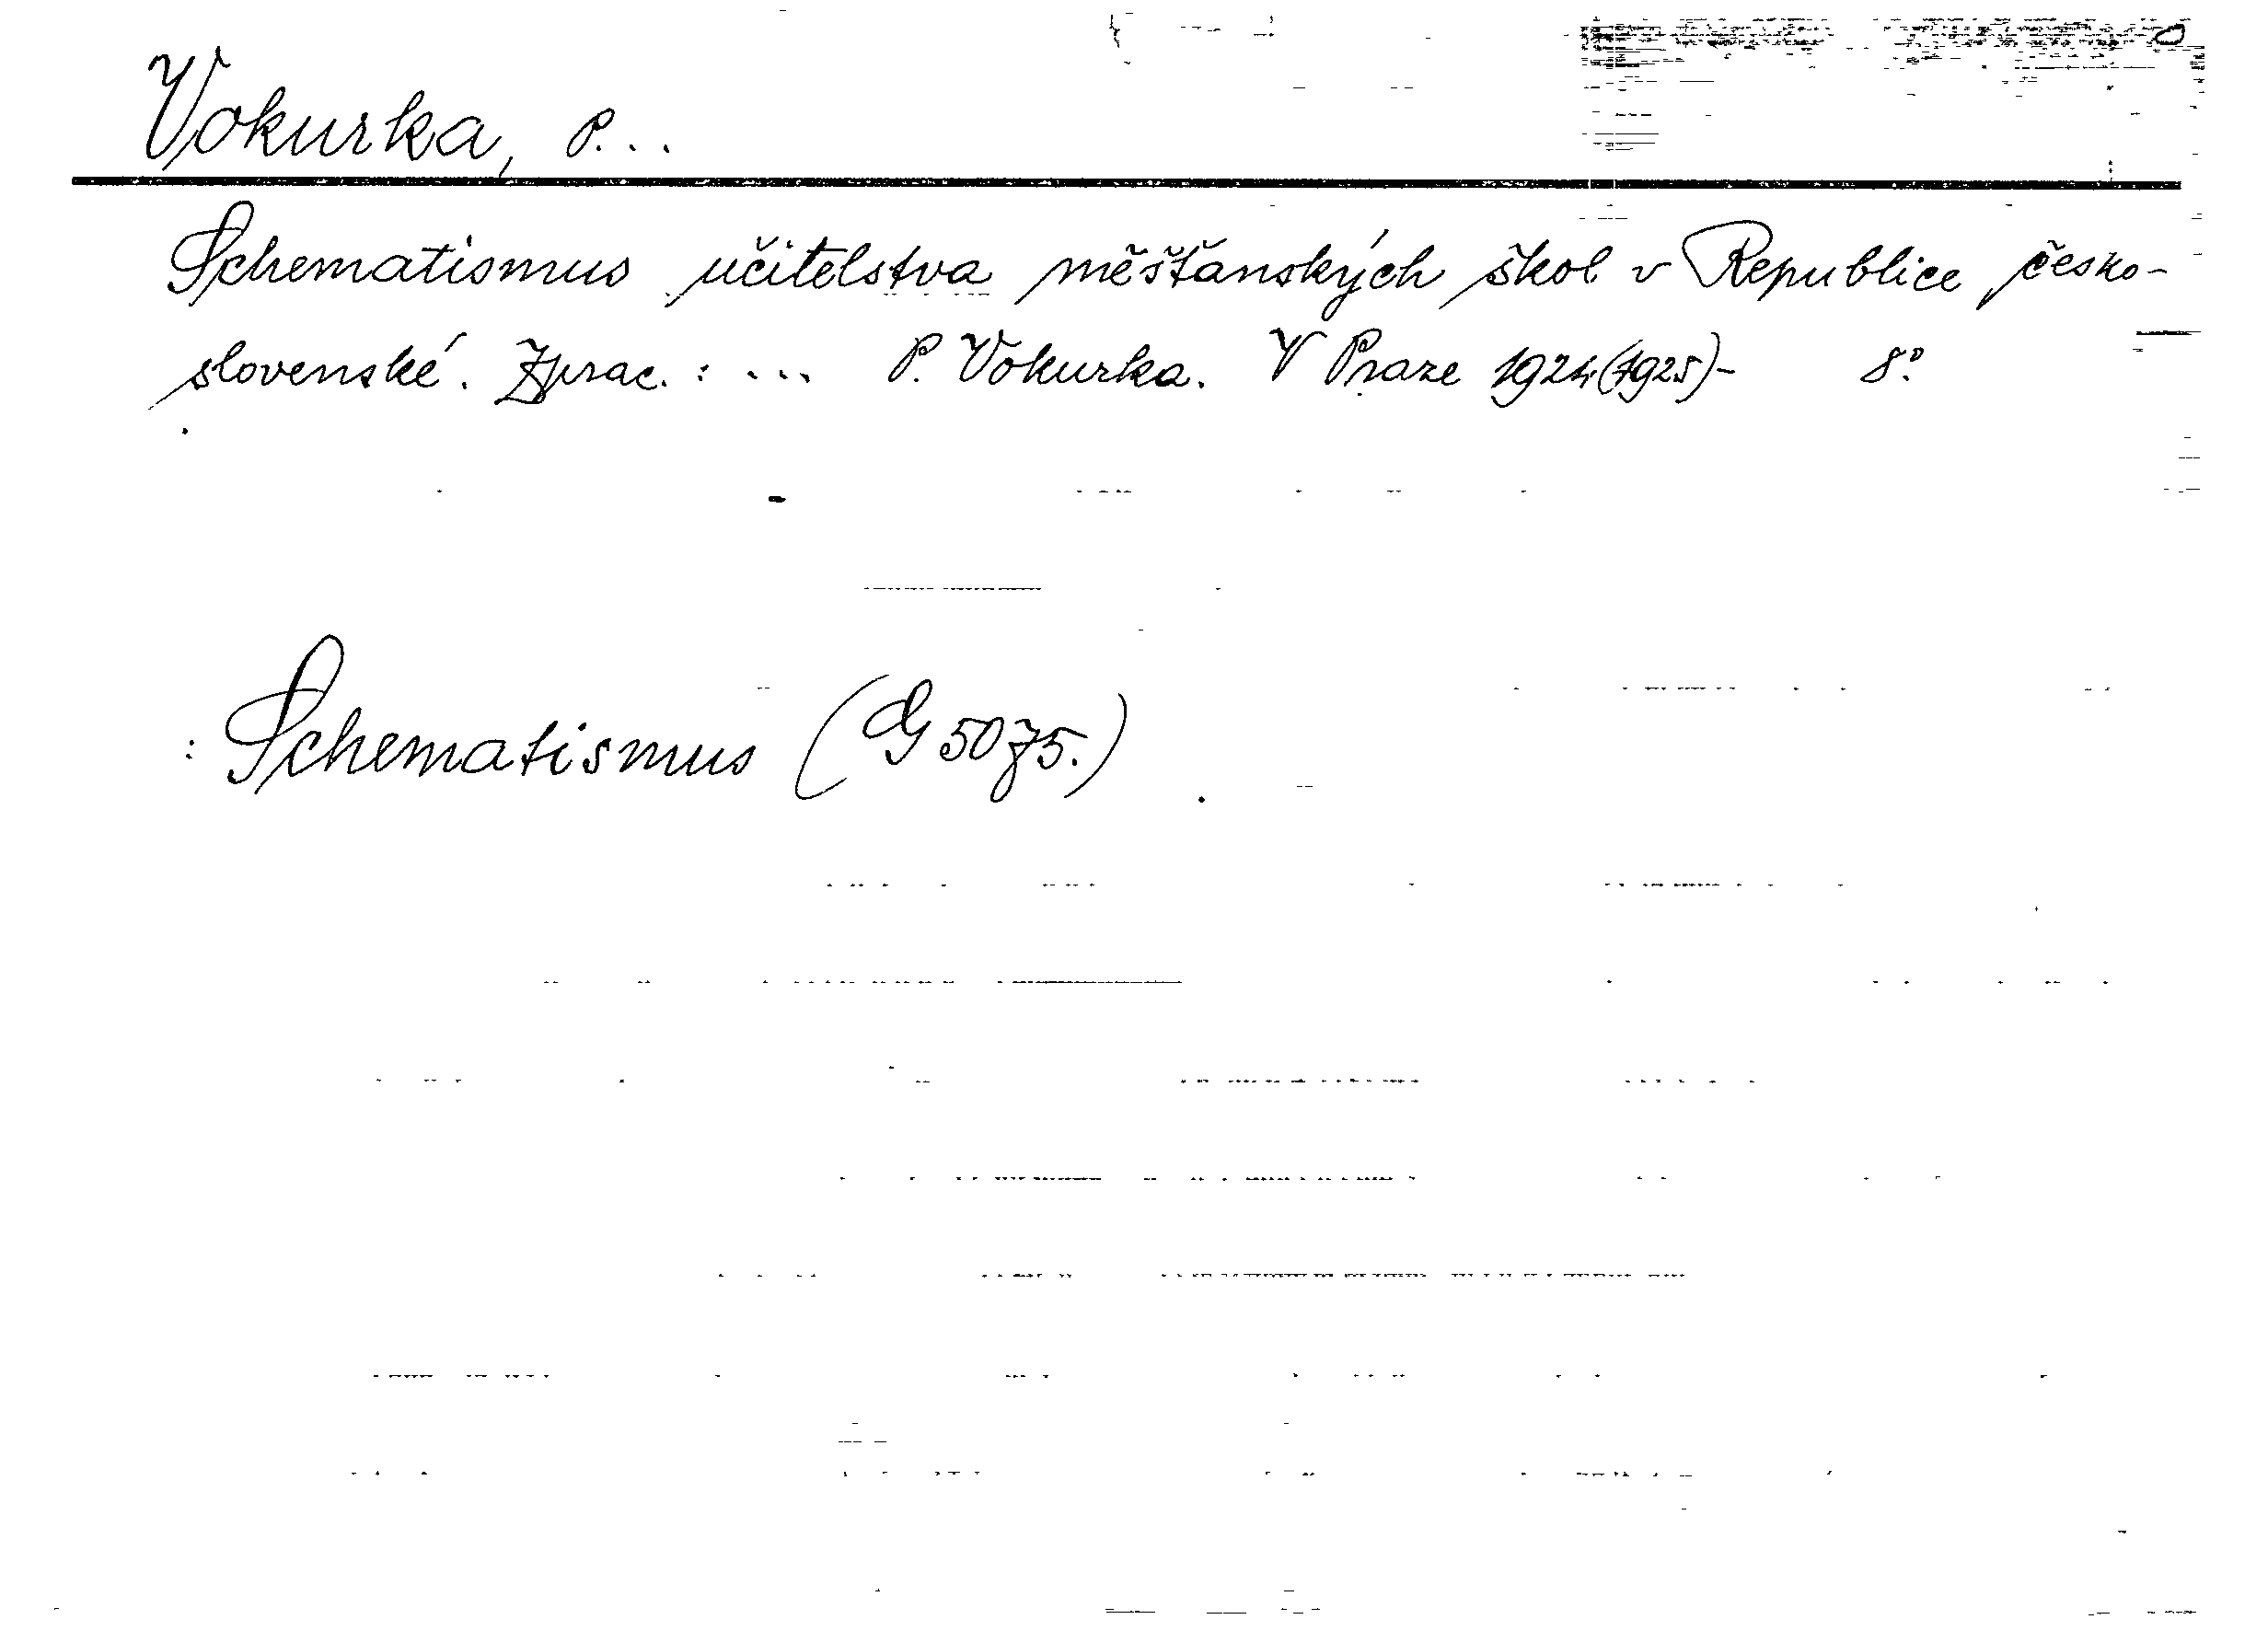 Vokurka, P...
Schematismus učitelstva měšťanských škol v Republice česko-
slovenské. Zprac.: ... P. Vokurka. V Praze 1924(1925)- 8°.
: Schematismus (G 5075.)